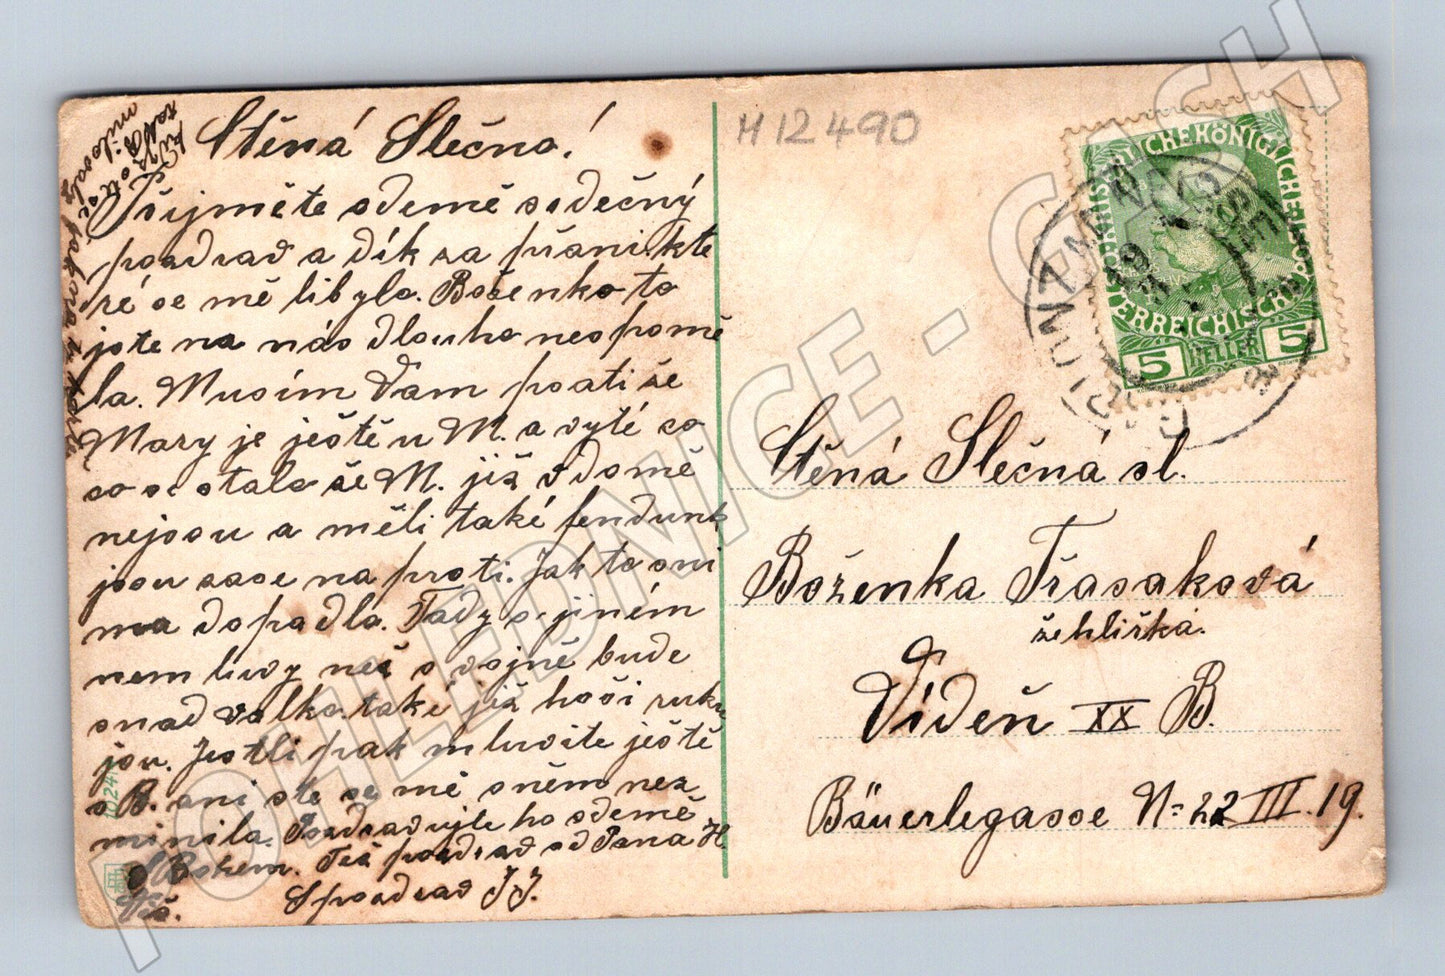 Ctěná Slečno!
Přijměte odemě srdečný
pozdrav a dík za přání, kte
ré se mě líbylo. Boženko to
jste na nás dlouho nespomě
la. Musím Vam psati že
Mary je ještě u M. a vyté co
co se stalo že M. již v domě
nejsou a měli také fendunk
jsou zase na proti. Jak to oni
ma dopadla. Tady o jiném
nem luvy než o vojně bude
snad valka také již hoši ruku
jou. Jestli pak mluvite ještě
s B. ani ste se mě o něm nez
minila. Pozdravujte ho odemě
S Bohem. Též pozdrav od Pana H.
S pozdrav J J.
H 12490
KAISERLICHE KÖNIGLICHE
ÖSTERREICHISCHE
5 HELLER 5
Ctěná Slečná sl.
Boženka Třasaková
žehliřká.
Vídeň XX B.
Bäuerlegasse N= 22 III. 19.
1024
POHLEDNICE - CASH